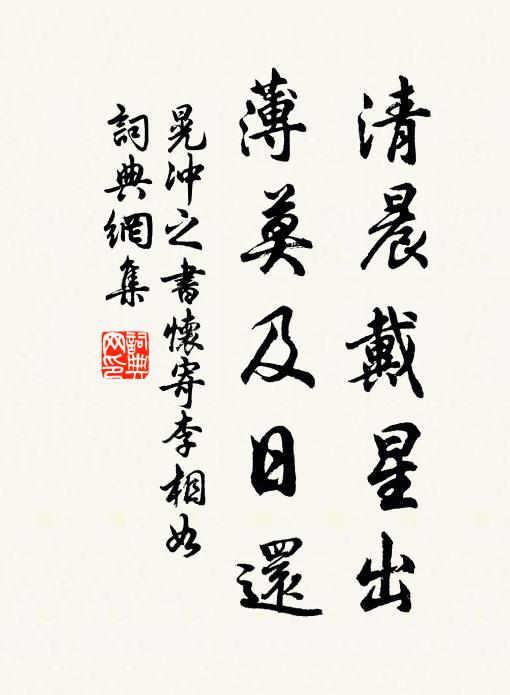 清晨戴星出
薄莫及日還
晁冲之書懷寄李相如
詞典網集
詞典
网印